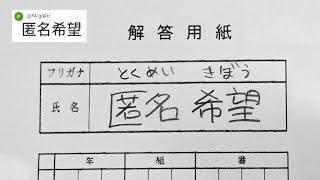 @FA-gd4rr
匿名希望
解答用紙
フリガナ とくめい きぼう
氏名 匿名 希望
年 組 番